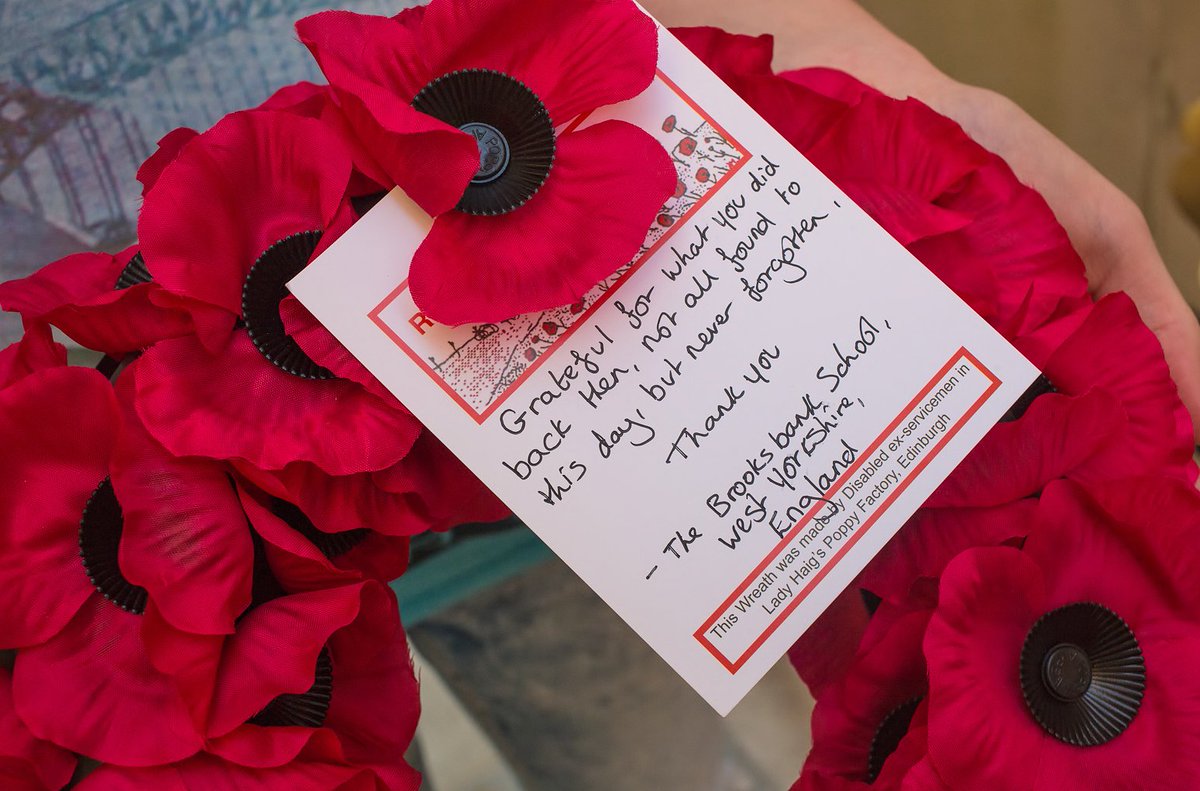 Grateful for what you did
back then, not all found to
this day, but never forgotten,
Thank you
- The Brooksbank School,
West Yorkshire,
England
This Wreath was made by Disabled ex-servicemen in
Lady Haig's Poppy Factory, Edinburgh